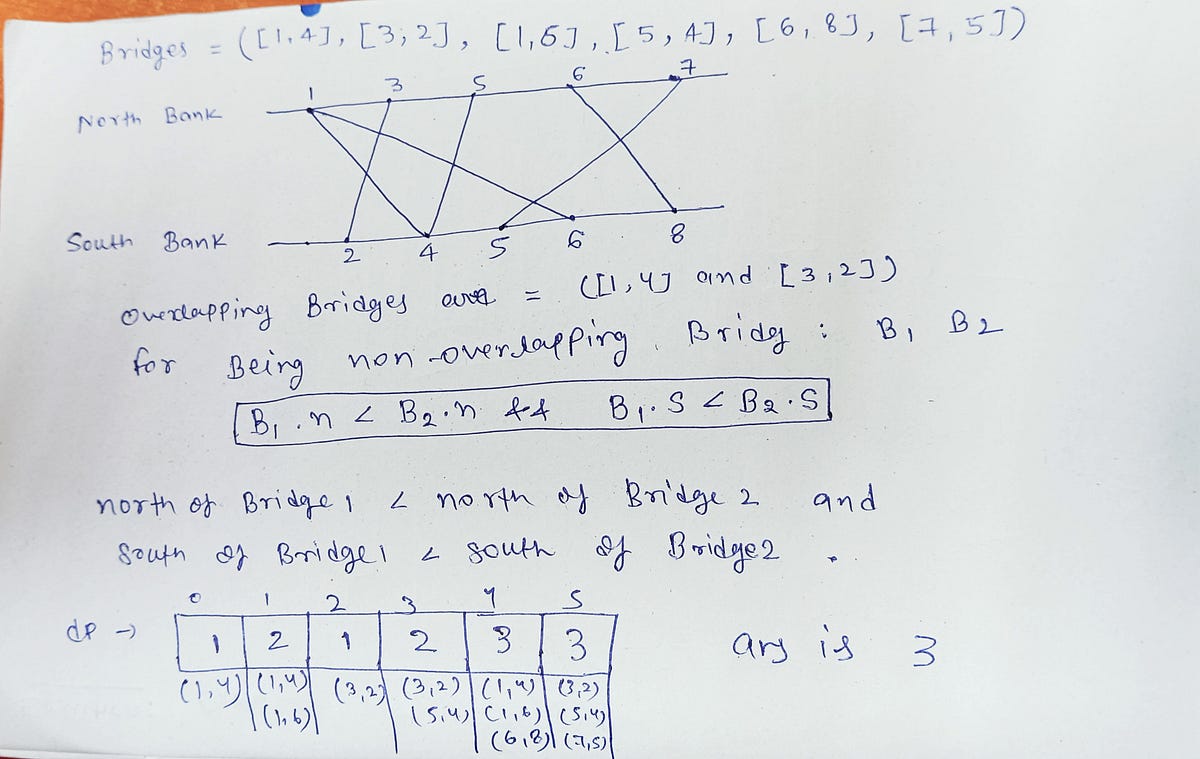 Bridges = ([1,4], [3,2], [1,6], [5,4], [6,8], [7,5])
1 3 5 6 7
North Bank
South Bank
2 4 5 6 8
overlapping Bridges are = ([1,4] and [3,2])
for Being non-overlapping Bridg : B1 B2
B1.n < B2.n && B1.S < B2.S
north of Bridge 1 < north of Bridge 2 and
South of Bridge 1 < south of Bridge 2 .
0 1 2 3 4 5
dp → 1 2 1 2 3 3 ans is 3
(1,4) (1,4) (3,2) (3,2) (1,4) (3,2)
(1,6) (5,4) (1,6) (5,4)
(6,8) (7,5)